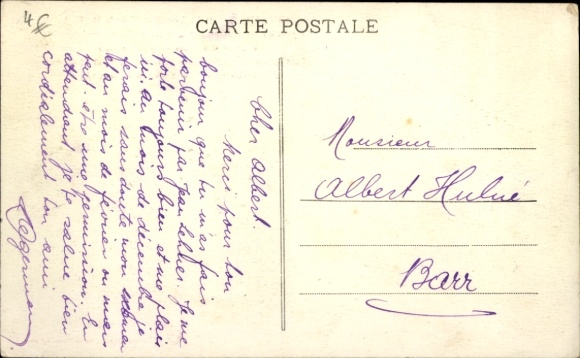 4€
CARTE POSTALE
Cher Albert.
Merci pour ton
bonjour que tu m'as fais
parvenir par Jean Lehner. Je me
porte toujours bien et me plais
ici au mois de décembre je
ferais sans doute mon examen
et au mois de février ou mars
peut être une permission. En
attendant je te salue bien
cordialement ton ami
Monsieur
Albert
Barr